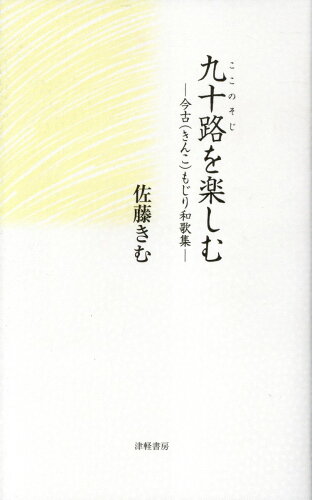 ここのそじ
九十路を楽しむ
―今古(きんこ)もじり和歌集―
佐藤きむ
津軽書房